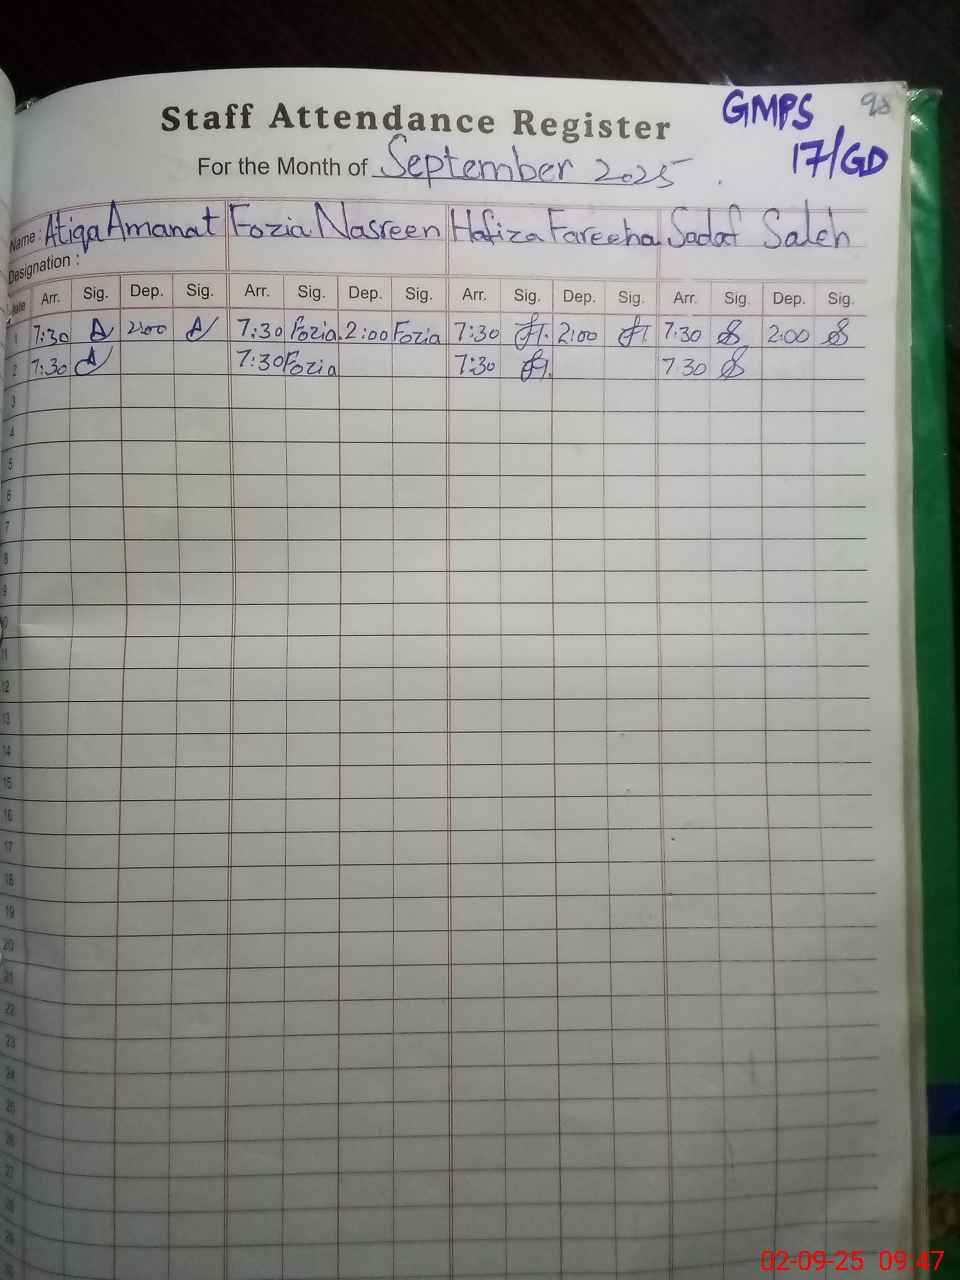 Staff Attendance Register
GMPS 98
17/GD
For the Month of September 2025
Name : Atiqa Amanat Fozia Nasreen Hafiza Fareeha Sadaf Saleh
Designation :
Date Arr. Sig. Dep. Sig. Arr. Sig. Dep. Sig. Arr. Sig. Dep. Sig. Arr. Sig. Dep. Sig.
1 7:30 A 2:00 A 7:30 Fozia. 2:00 Fozia 7:30 2:00 7:30 2:00
2 7:30 A 7:30 Fozia 7:30 7:30
3
4
5
6
7
8
9
10
11
12
13
14
15
16
17
18
19
20
21
22
23
24
25
26
27
28
29
30
02-09-25 09:47